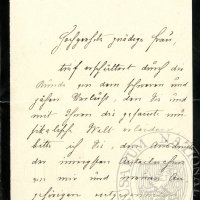 Hochgeehrte gnädige Frau
tief erschüttert durch die
Kunde von dem schweren und
jähen Verluste, den Sie und
mit Ihnen die gesamte musikalische Welt erlitten
bitte ich Sie, den Ausdruck
der innigsten Antheilnahme
von mir und meinen Angehörigen entgegen